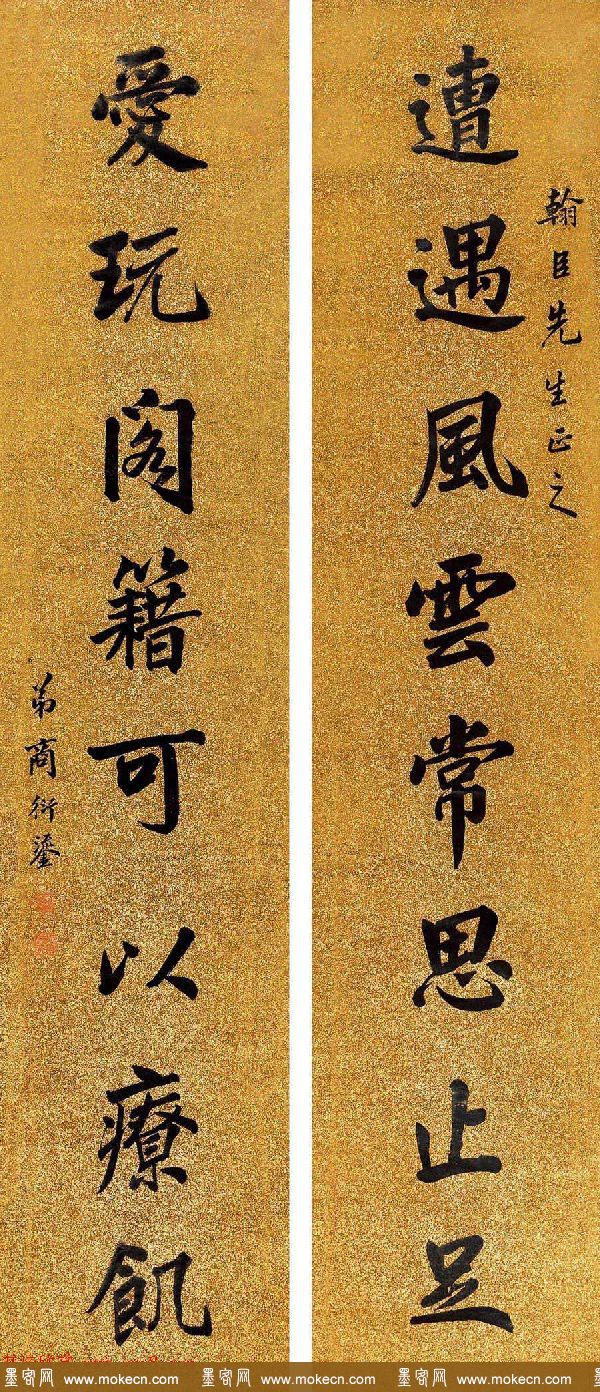 翰臣先生正之
遭遇風雲常思止足
愛玩阁籍可以療飢
弟商衍鎏
墨客网 www.mokecn.com 墨客网 www.mokecn.com 墨客网 www.mokecn.com